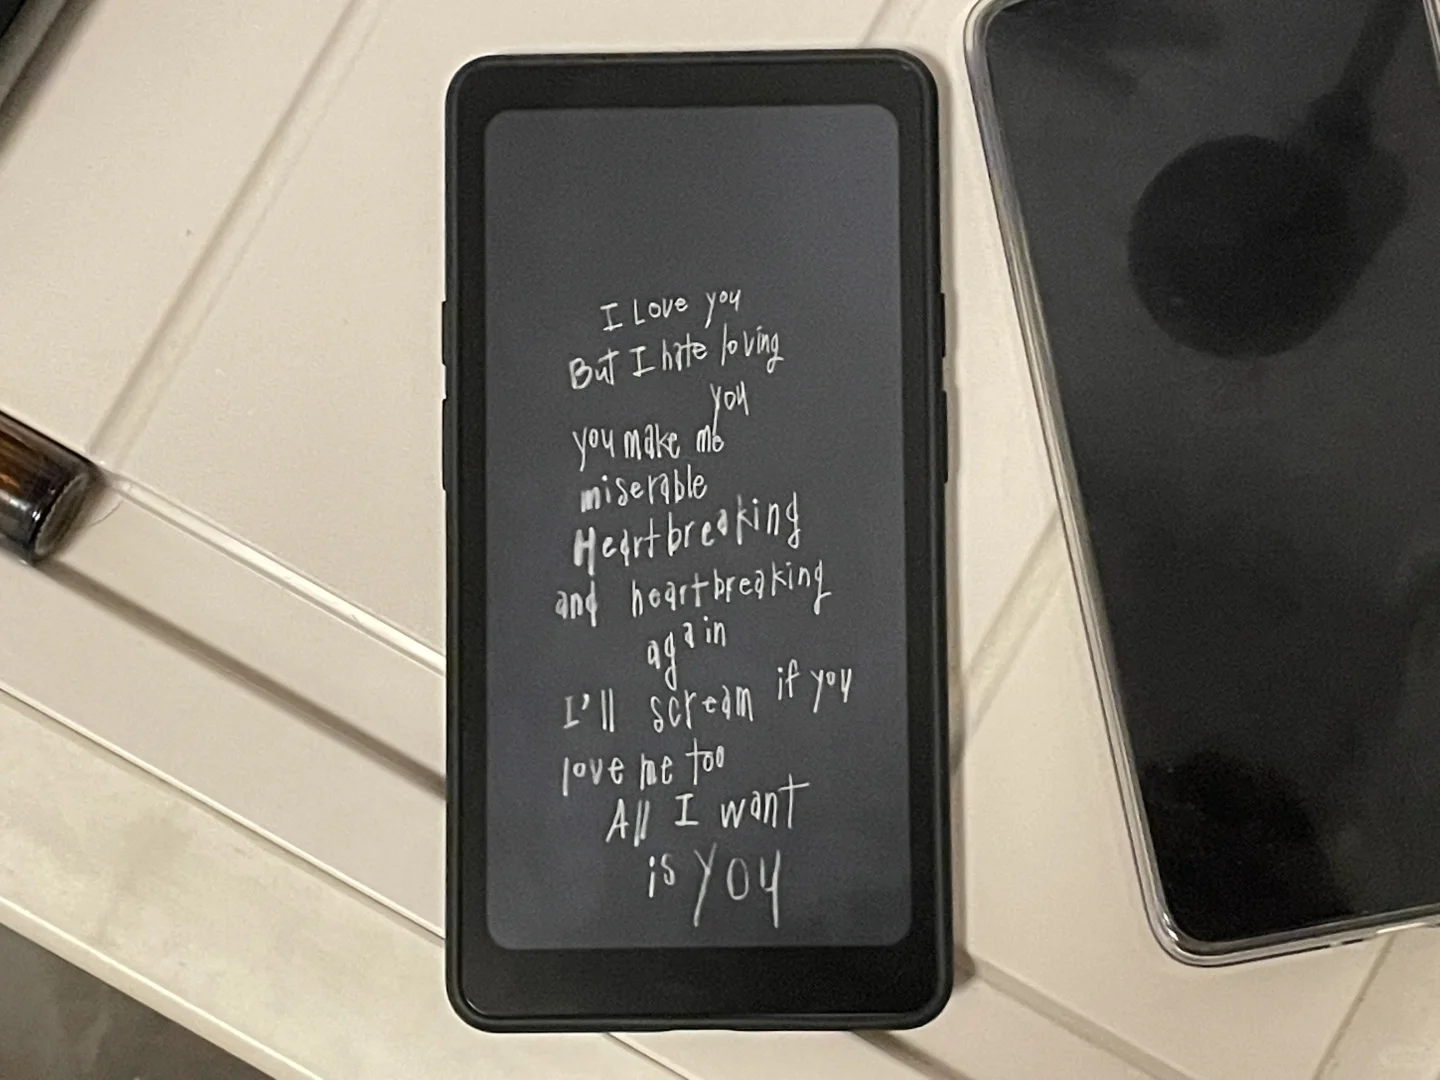 I Love you
But I hate loving
you
you make me
miserable
Heartbreaking
and heartbreaking
again
I'll scream if you
love me too
All I want
is you